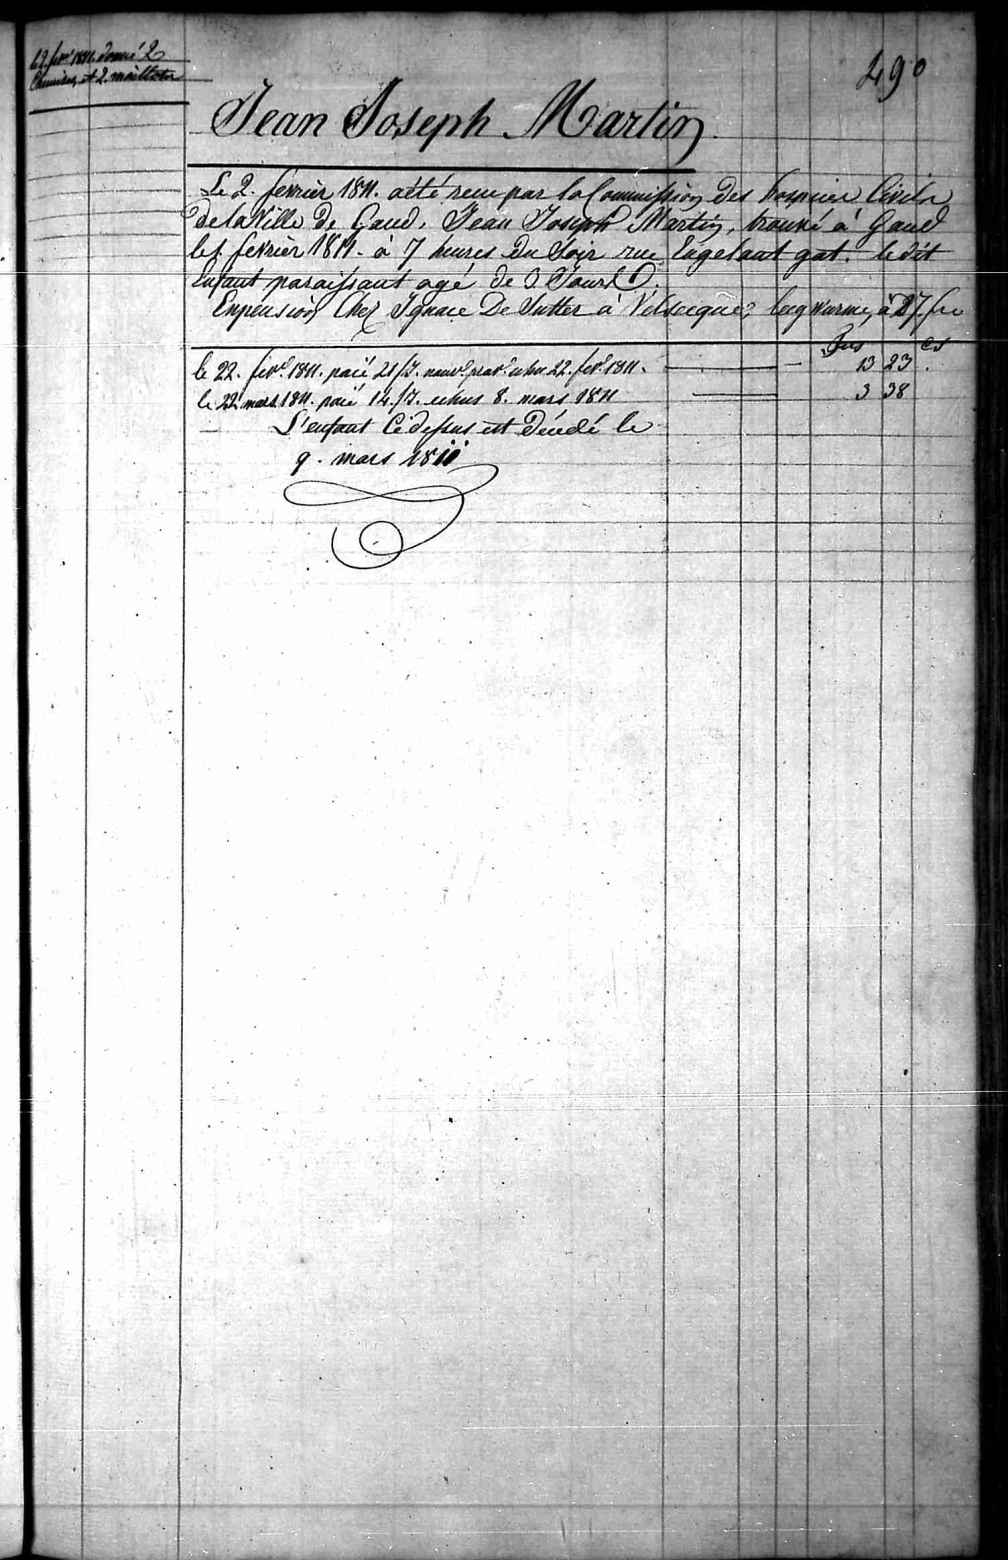 fevr 1811. donné 2
Chemises, et 2. maillots
490
Jean Joseph Martin
Le 2. fevrièr 1811. a été recu par la Commission des hospices Civils
de la Ville de Gand, Jean Joseph Martin, trouvé à Gand
le 1 fevrièr 1811. à 7 heures Du Soir rue Engelant gat. le dit
Enfant paroissant agé de 8 Jours.
Enpension Chez Ignace De Sutter à à 27 frs
frs cs
le 22. fevr. 1811. paié 21/J. echu 22. fevr. 1811. 13 23.
le 22 mars 1811. paié 14/J. echus 8. mars 1811 3 38
L'enfant Cidessus est Décédé le
9. mars 1811